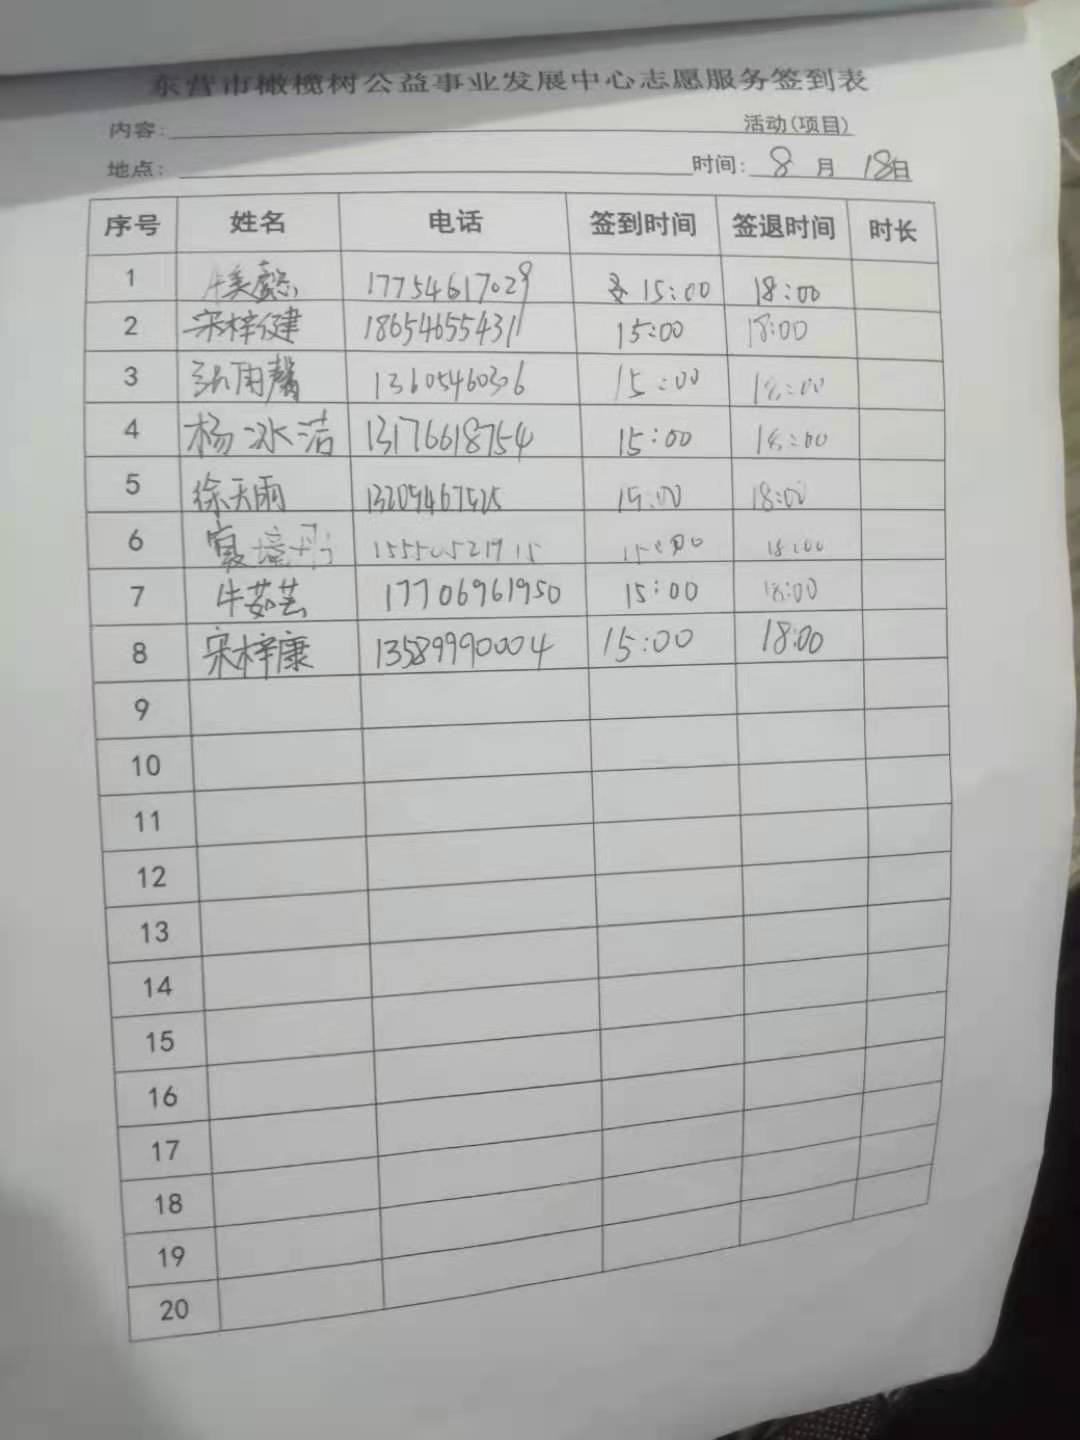 东营市橄榄树公益事业发展中心志愿服务签到表
内容: 活动(项目)
地点: 时间: 8 月 18日
序号 姓名 电话 签到时间 签退时间 时长
1 美懿 17754617029 15:00 18:00
2 宋梓健 18654655431 15:00 18:00
3 张雨馨 13605460306 15:00 18:00
4 杨冰洁 13176618754 15:00 18:00
5 徐天雨 15:00 18:00
6 15:00 18:00
7 牛茹芸 17706961950 15:00 18:00
8 宋梓康 13589990004 15:00 18:00
9
10
11
12
13
14
15
16
17
18
19
20